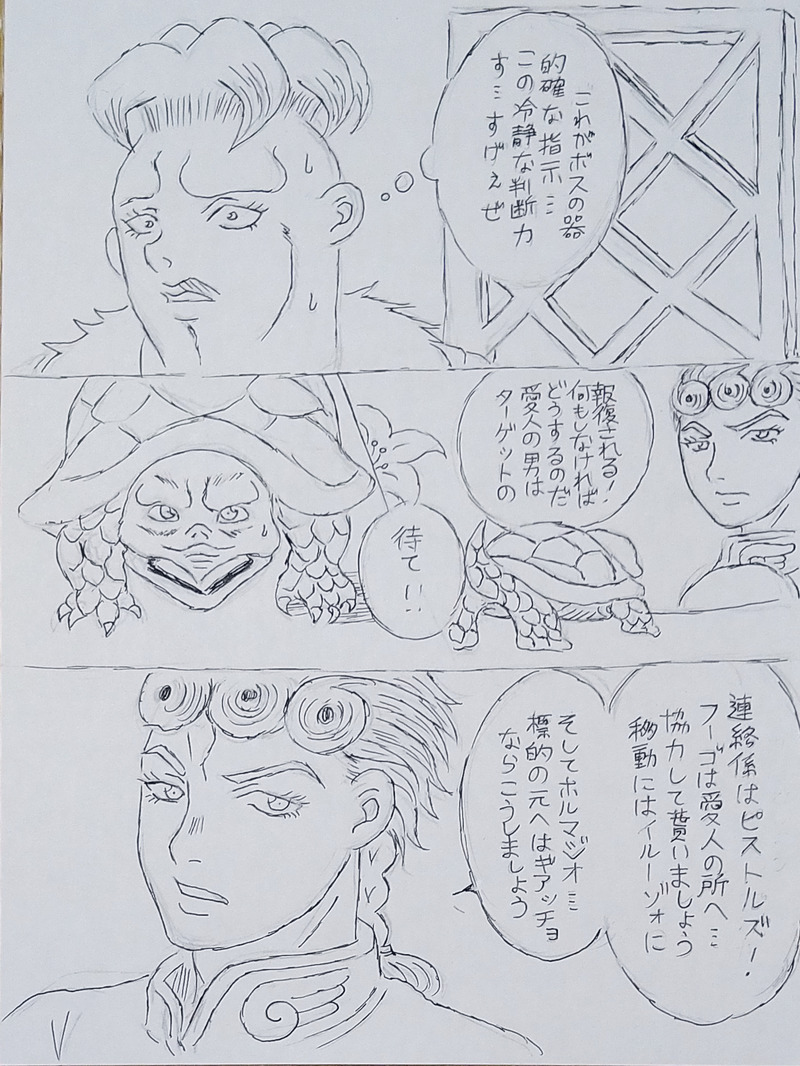 す…すげえぜ
この冷静な判断力
的確な指示…
これがボスの器
待て!!
ターゲットの
愛人の男は
どうするのだ
何もしなければ
報復される!
ならこうしましょう
標的の元へはギアッチョ
そしてホルマジオ…
移動にはイルーゾォに
協力して貰いましょう
フーゴは愛人の所へ…
連絡係はピストルズ!